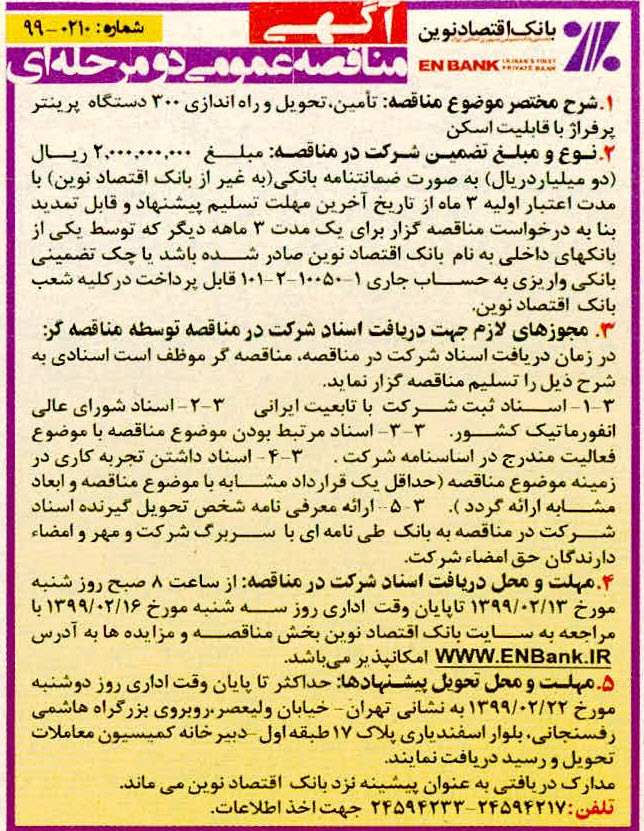 بانک اقتصاد نوین
نخستین بانک خصوصی جمهوری اسلامی ایران
EN BANK I.R.IRAN'S FIRST PRIVATE BANK
آگهی
شماره: ۰۲۱۰-۹۹
مناقصه عمومی دو مرحله ای
۱.شرح مختصر موضوع مناقصه: تأمین، تحویل و راه اندازی ۳۰۰ دستگاه پرینتر
پرفراژ با قابلیت اسکن
۲.نوع و مبلغ تضمین شرکت در مناقصه: مبلغ ۲,۰۰۰,۰۰۰,۰۰۰ ریال
(دو میلیاردریال) به صورت ضمانتنامه بانکی(به غیر از بانک اقتصاد نوین) با
مدت اعتبار اولیه ۳ ماه از تاریخ آخرین مهلت تسلیم پیشنهاد و قابل تمدید
بنا به درخواست مناقصه گزار برای یک مدت ۳ ماهه دیگر که توسط یکی از
بانکهای داخلی به نام بانک اقتصاد نوین صادر شده باشد یا چک تضمینی
بانکی واریزی به حساب جاری ۱-۱۰۰۵۰-۲-۱۰۱ قابل پرداخت درکلیه شعب
بانک اقتصاد نوین.
۳. مجوزهای لازم جهت دریافت اسناد شرکت در مناقصه توسطه مناقصه گر:
در زمان دریافت اسناد شرکت در مناقصه، مناقصه گر موظف است اسنادی به
شرح ذیل را تسلیم مناقصه گزار نماید.
۳-۱- اسناد ثبت شرکت با تابعیت ایرانی ۳-۲- اسناد شورای عالی
انفورماتیک کشور. ۳-۳- اسناد مرتبط بودن موضوع مناقصه با موضوع
فعالیت مندرج در اساسنامه شرکت . ۳-۴- اسناد داشتن تجربه کاری در
زمینه موضوع مناقصه (حداقل یک قرارداد مشابه با موضوع مناقصه و ابعاد
مشابه ارائه گردد ). ۳-۵- ارائه معرفی نامه شخص تحویل گیرنده اسناد
شرکت در مناقصه به بانک طی نامه ای با سربرگ شرکت و مهر و امضاء
دارندگان حق امضاء شرکت.
۴.مهلت و محل دریافت اسناد شرکت در مناقصه: از ساعت ۸ صبح روز شنبه
مورخ ۱۳۹۹/۰۲/۱۳ تاپایان وقت اداری روز سه شنبه مورخ ۱۳۹۹/۰۲/۱۶ با
مراجعه به سایت بانک اقتصاد نوین بخش مناقصه و مزایده ها به آدرس
WWW.ENBank.IR امکانپذیر می‌باشد.
۵.مهلت و محل تحویل پیشنهادها: حداکثر تا پایان وقت اداری روز دوشنبه
مورخ ۱۳۹۹/۰۲/۲۲ به نشانی تهران- خیابان ولیعصر،روبروی بزرگراه هاشمی
رفسنجانی، بلوار اسفندیاری پلاک ۱۷ طبقه اول-دبیرخانه کمیسیون معاملات
تحویل و رسید دریافت نمایند.
مدارک دریافتی به عنوان پیشینه نزد بانک اقتصاد نوین می ماند.
تلفن: ۲۴۵۹۴۲۱۷-۲۴۵۹۴۲۳۳ جهت اخذ اطلاعات.